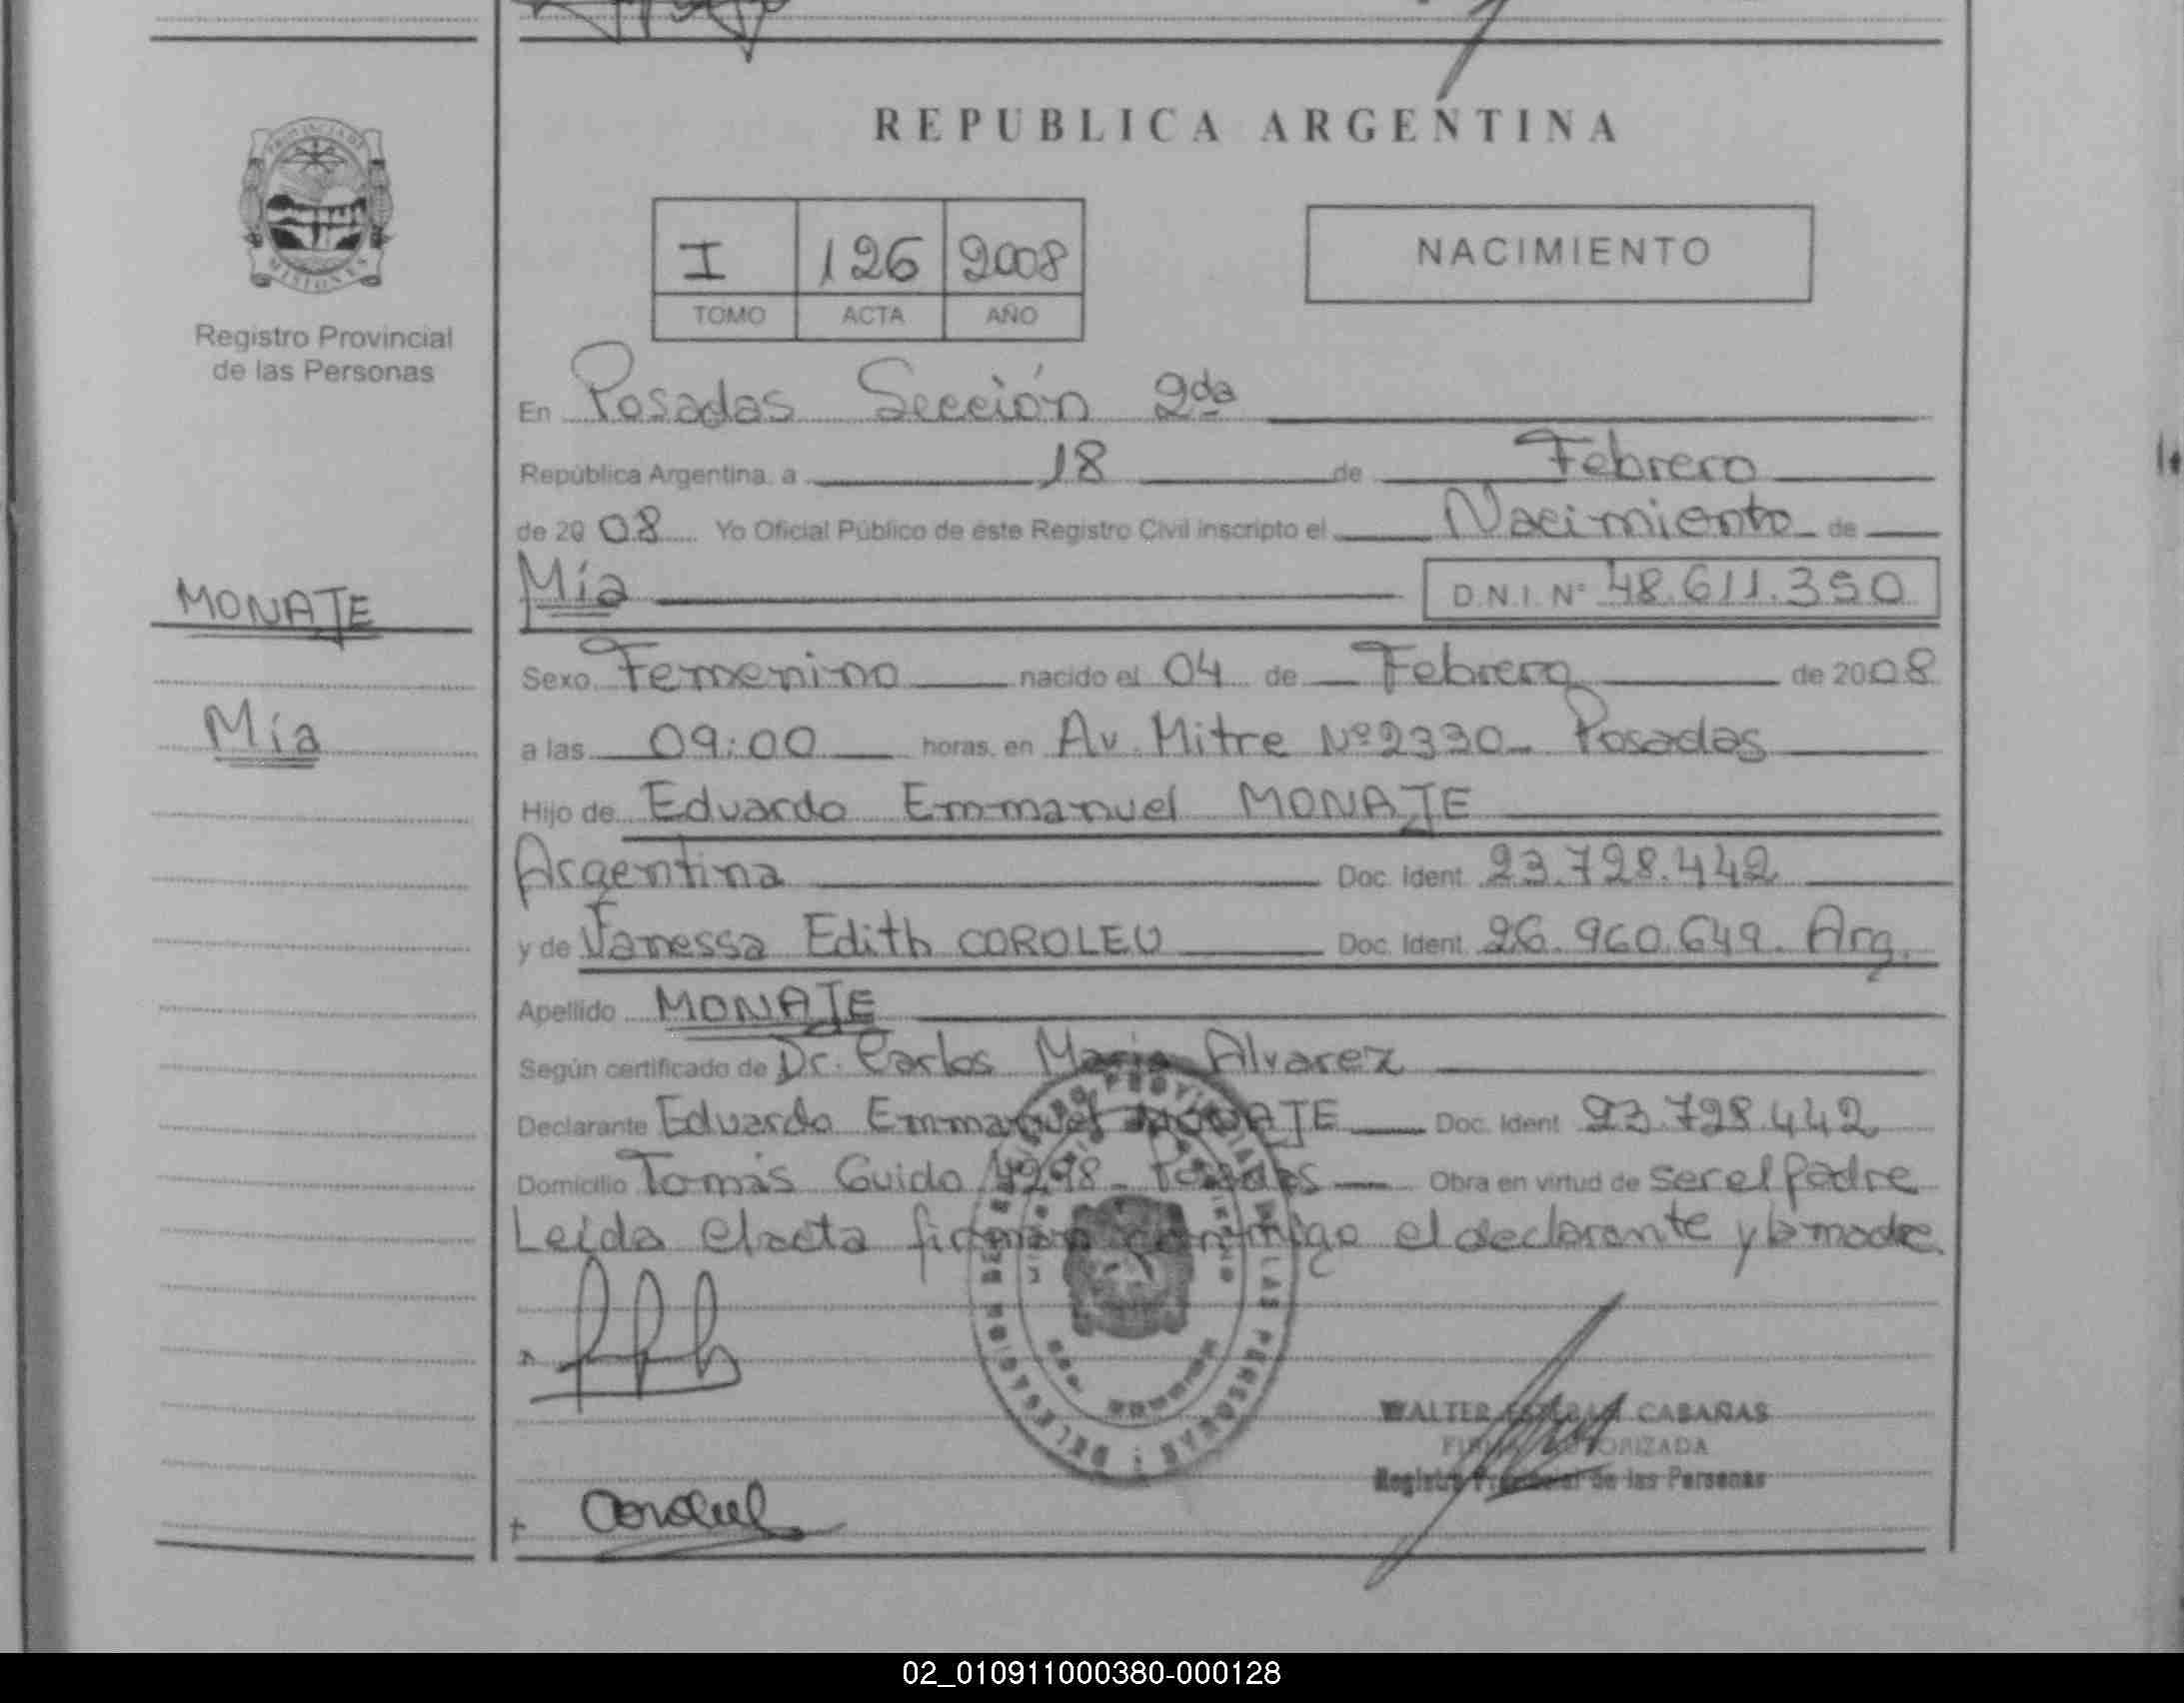 REPUBLICA ARGENTINA
I 126 2008
TOMO ACTA AÑO
NACIMIENTO
Registro Provincial
de las Personas
En Posadas Sección 2da
República Argentina, a 18 de Febrero
de 2008 Yo Oficial Público de este Registro Civil inscripto el Nacimiento de
MONATE
Mía D.N.I. Nº 48.611.350
Sexo Femenino nacido el 04 de Febrero de 2008
Mía
a las 09:00 horas, en Av. Mitre Nº 2330 - Posadas
Hijo de Eduardo Emmanuel MONATE
Argentina Doc. Ident. 23.728.442
y de Vanessa Edith COROLEU Doc. Ident. 26.960.649. Arg.
Apellido MONATE
Según certificado de Dr. Carlos Maria Alvarez
Declarante Eduardo Emmanuel MONATE Doc. Ident. 23.728.442
Domicilio Tomás Guido 4298 - Posadas Obra en virtud de ser el padre
Leída el acta firman conmigo el declarante y la madre.
WALTER ESTEBAN CABAÑAS
FIRMA AUTORIZADA
Registro Provincial de las Personas
02_010911000380-000128